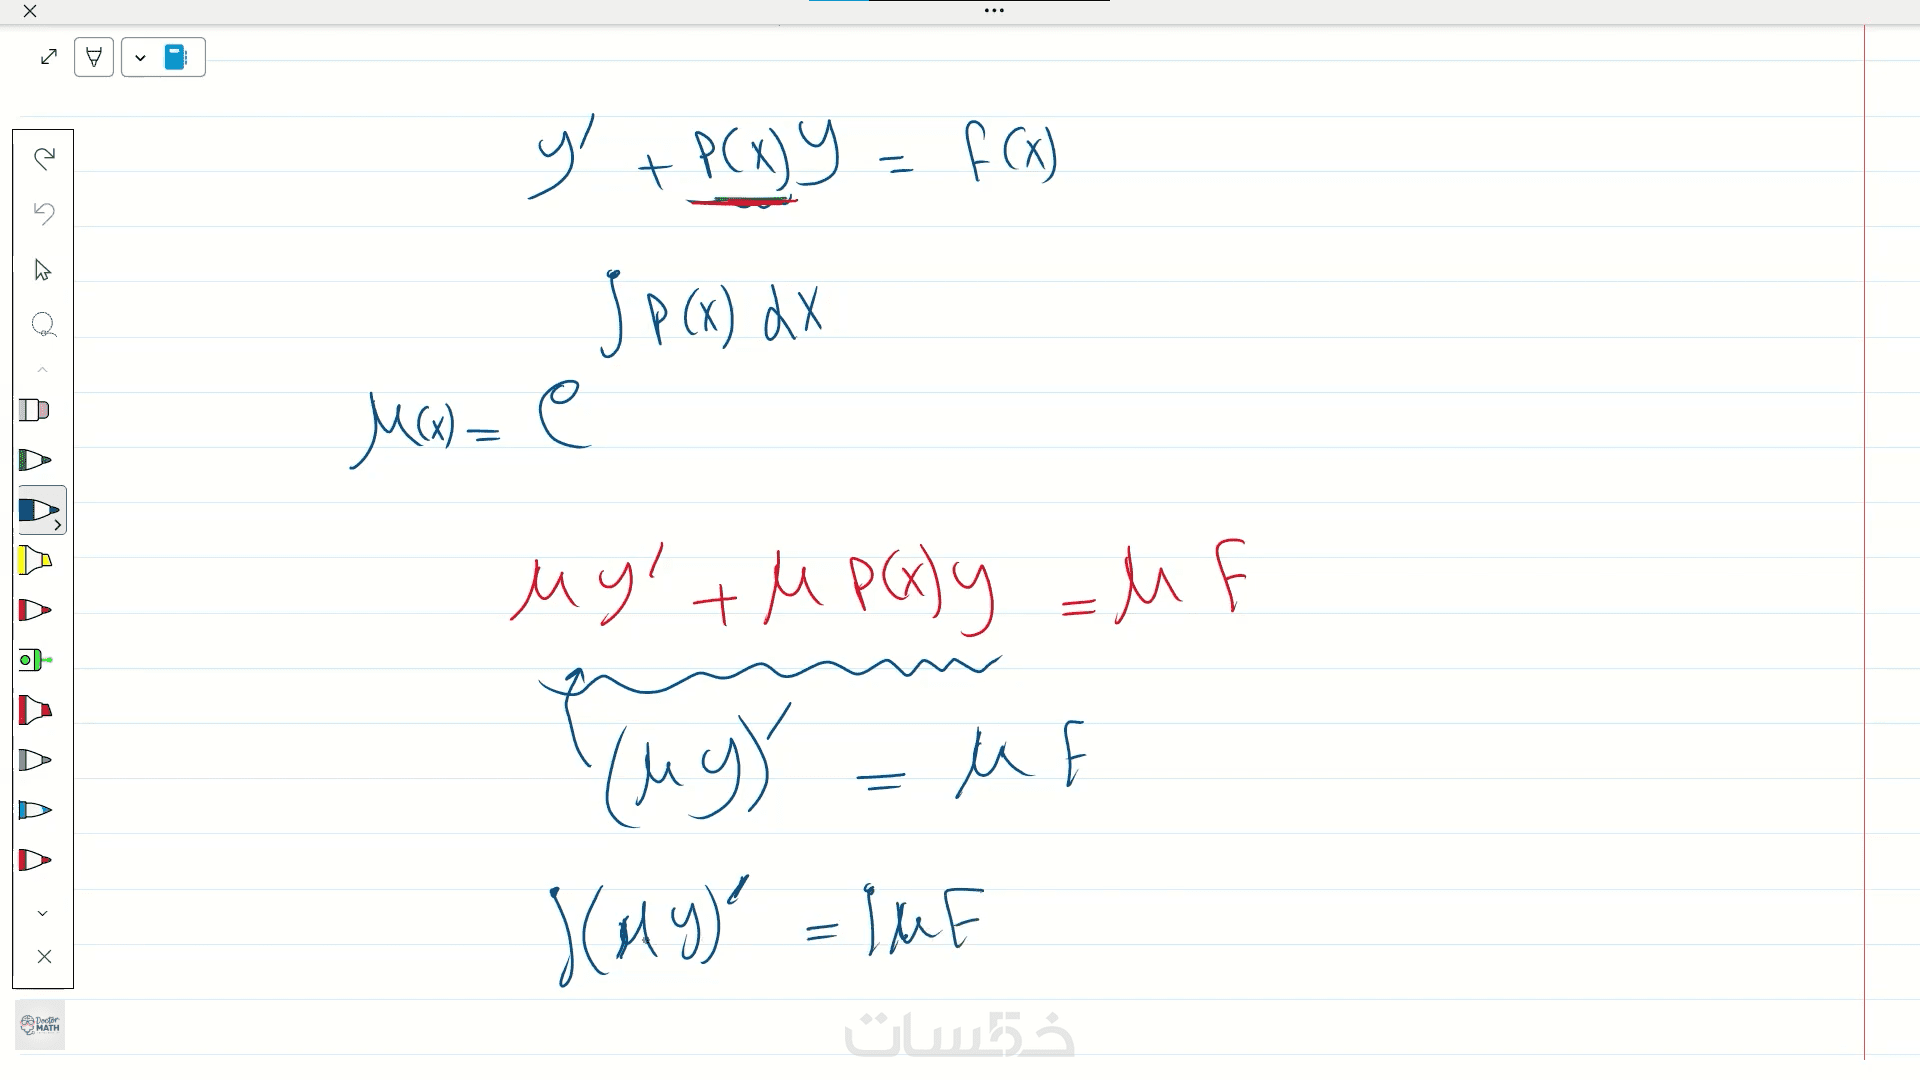 y' + P(x) y = F(x)
∫ P(x) dx
μ(x) = e
μ y' + μ P(x) y = μ F
(μ y)' = μ F
∫ (μ y)' = ∫ μ F
Doctor
MATH
خمسات